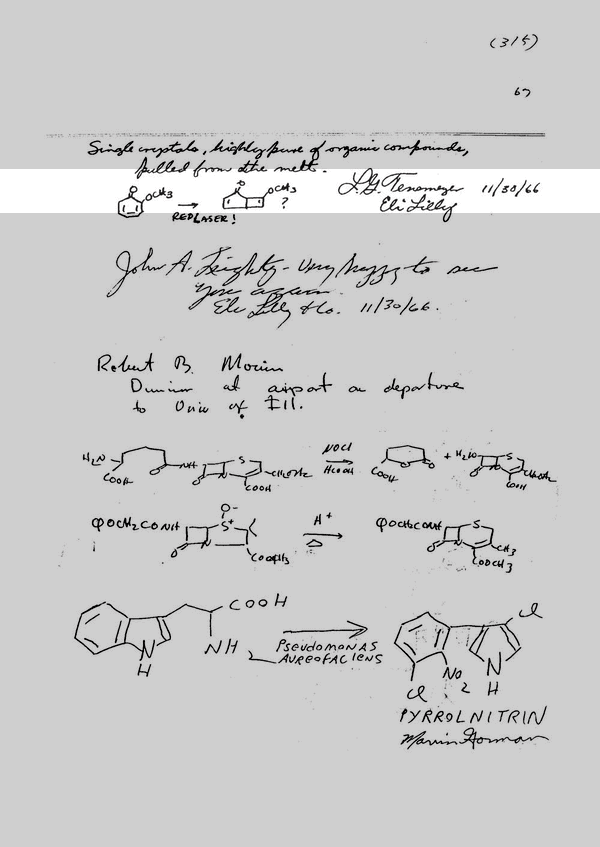 (315)
67
Single crystals, highly pure of organic compounds,
pulled from the melt.
O OCH3 → O OCH3 ?
RED LASER!
L.G. Tensmeyer 11/30/66
Eli Lilly
John A. - Very happy to see
you again.
Eli Lilly & Co. 11/30/66.
Robert B. Morin
at airport on departure
to Univ of Ill.
H2N COOH O NH O N S CH2OAc COOH
NOCl
HCOOH
COOH O O + H2N O N S CH2OAc COOH
φOCH2CONH O N S+ O- COOCH3
H+
Δ
φOCH2CONH O N S CH3 COOCH3
COOH
NH2
N
H
PSEUDOMONAS
AUREOFACIENS
Cl
NO2
Cl
N
H
PYRROLNITRIN
Marvin Gorman